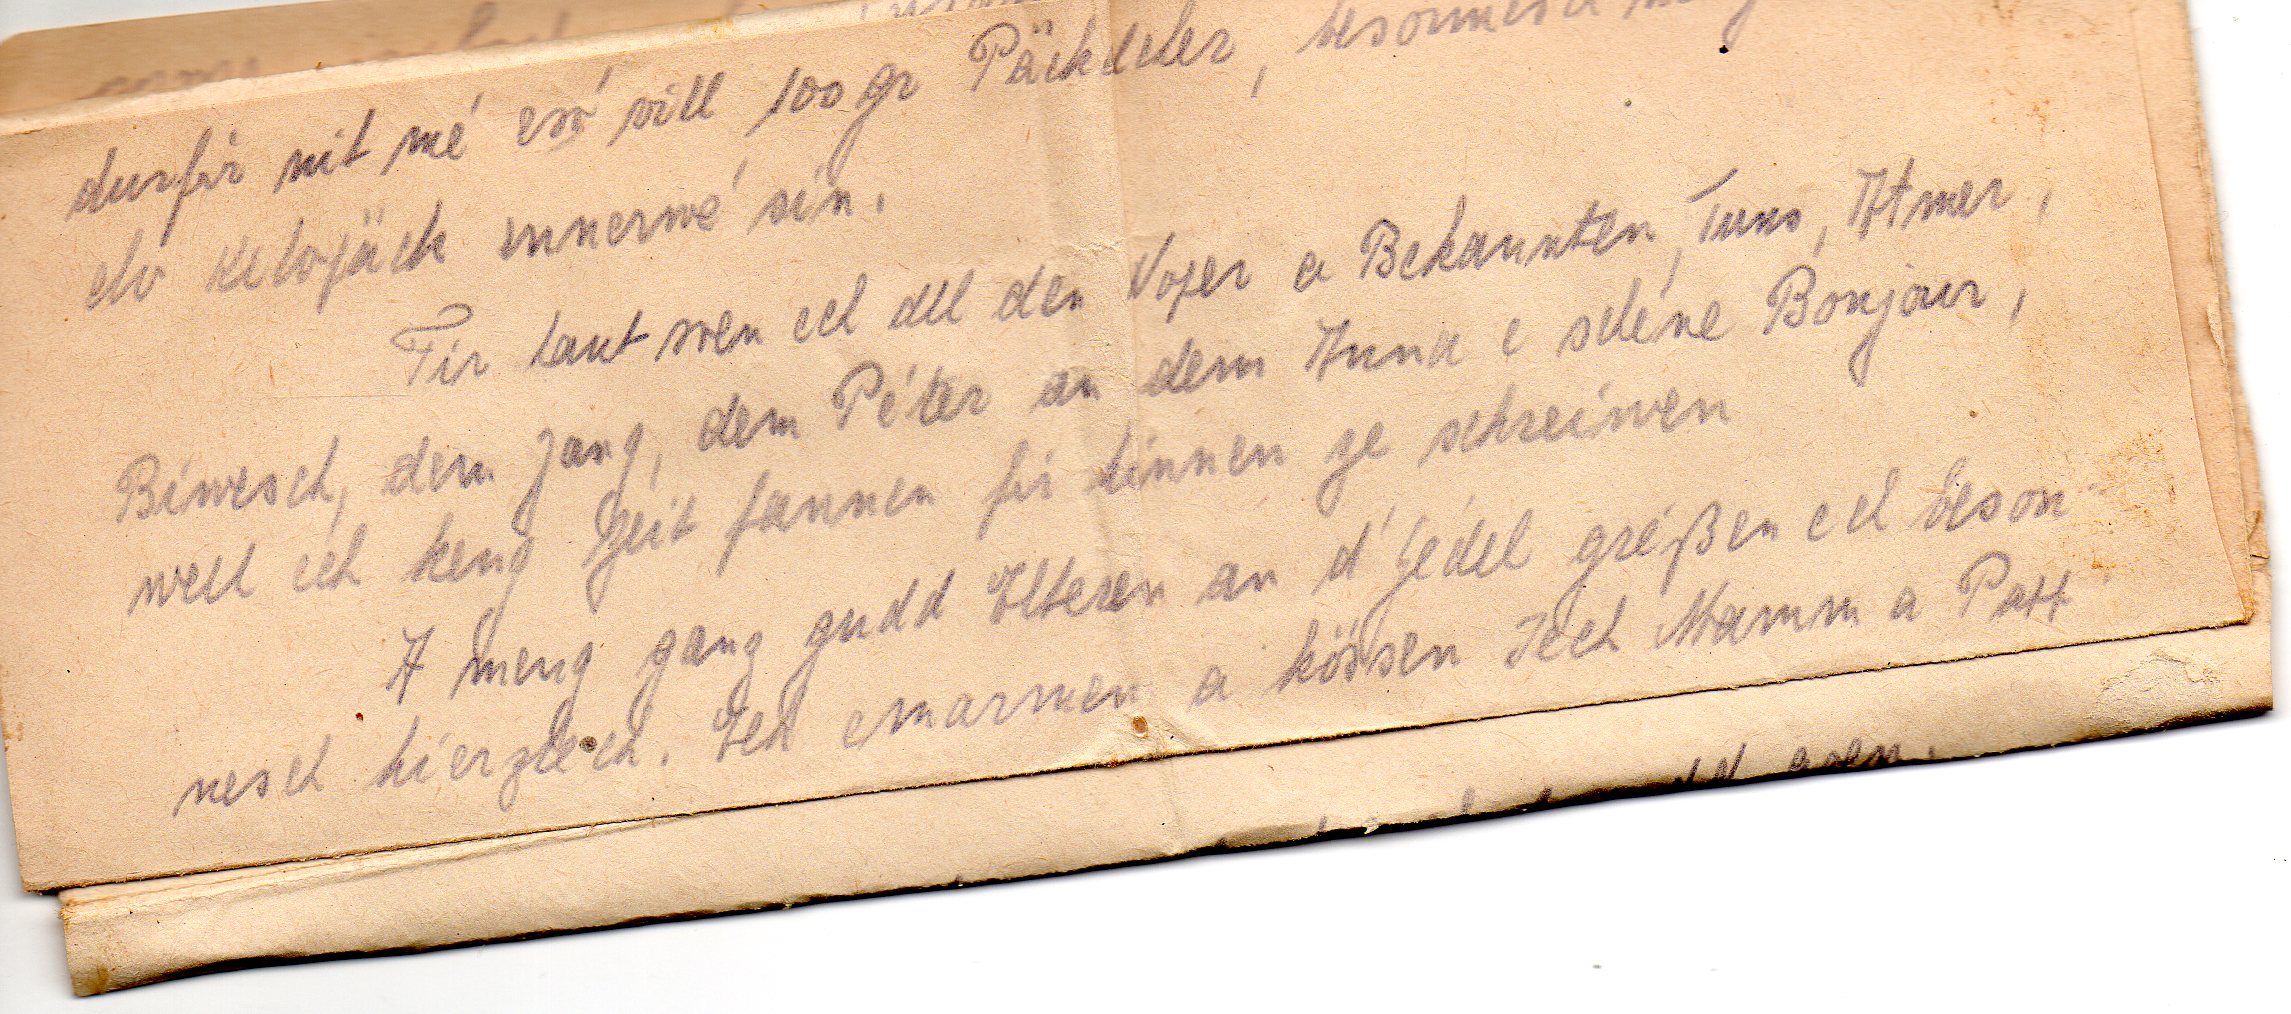 durfir nit mé esó vill 100 gr Päckelcher, besonnesch
elo Kilospäck ennerwé sin.
Fir haut wen ech all den Noper a Bekannten, Tuns, Atmer,
Biwesch, dem Jang, dem Péter an dem Anna e schéne Bonjour,
well ech keng Zeit fannen fir hinnen ze schreiwen
A meng ganz gudd Elteren an d'Gédel gréßen ech beson-
nesch hierzlech. Ech emarmen a kössen Iech Mamm a Papp
gren.